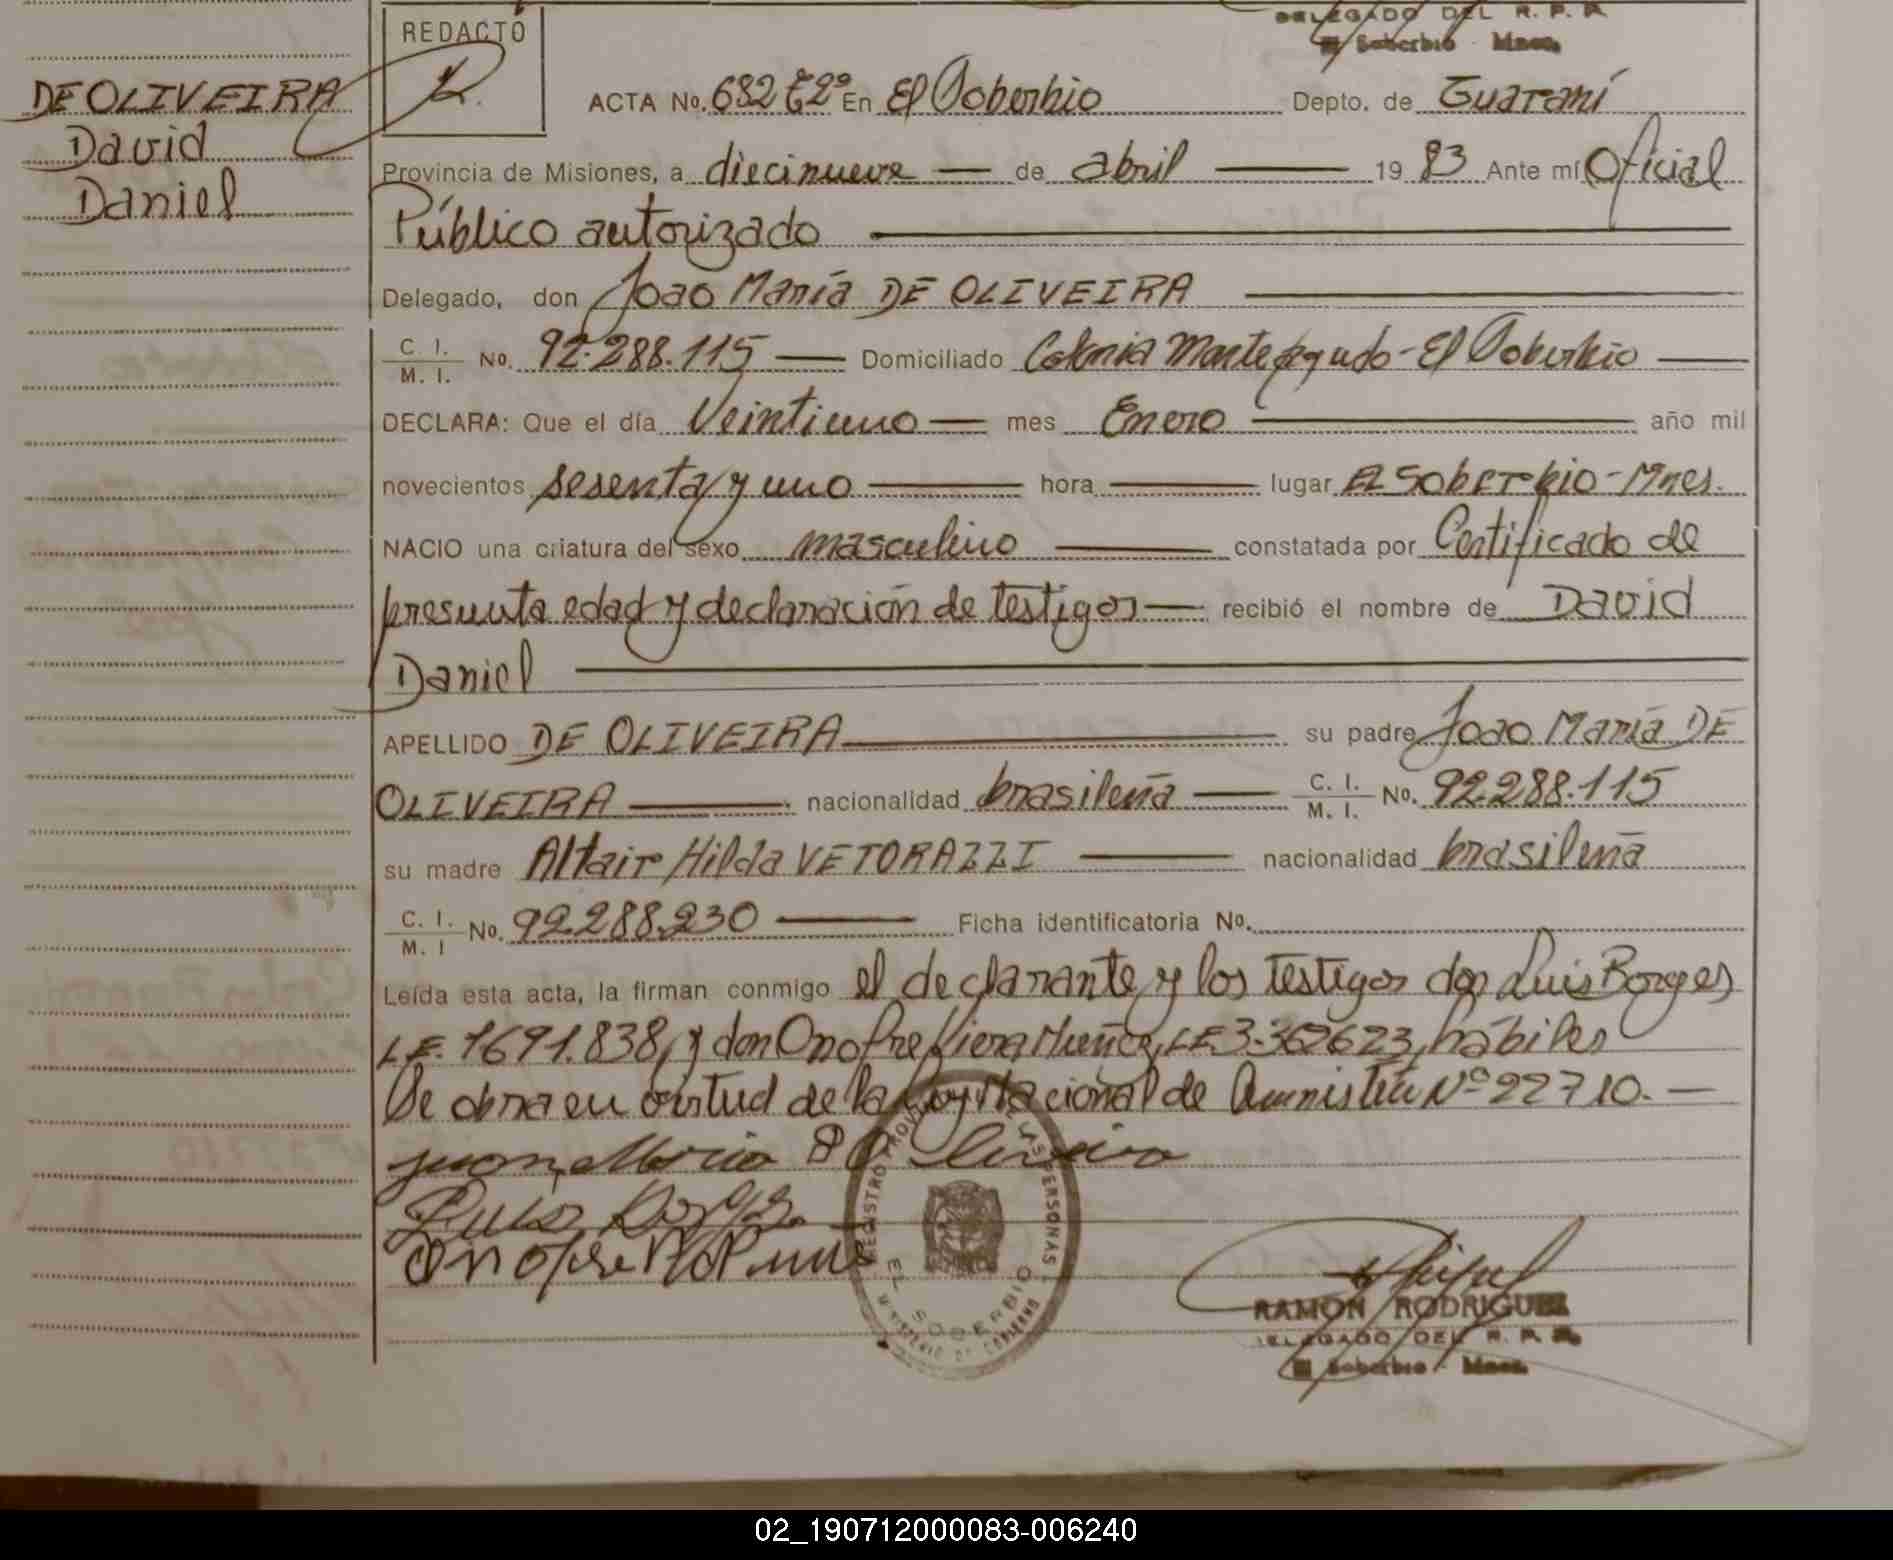 DELEGADO DEL R. P. P.
El Soberbio - Mnes.
REDACTO
DE OLIVEIRA
David
Daniel
ACTA No. 632 T2º En El Soberbio Depto. de Guaraní
Provincia de Misiones, a diecinueve de abril 19 83 Ante mí Oficial
Público autorizado
Delegado, don Joao María DE OLIVEIRA
C. I.
M. I. No. 92.288.115 Domiciliado Colonia Monteagudo - El Soberbio
DECLARA: Que el día Veintiuno mes Enero año mil
novecientos sesenta y uno hora lugar El Soberbio - Mnes.
NACIO una criatura del sexo masculino constatada por Certificado de
presunta edad y declaración de testigos recibió el nombre de David
Daniel
APELLIDO DE OLIVEIRA su padre Joao María DE
OLIVEIRA nacionalidad brasileña C. I.
M. I. No. 92.288.115
su madre Altair Hilda VETORAZZI nacionalidad brasileña
C. I.
M. I No. 92.288.230 Ficha identificatoria No.
Leída esta acta, la firman conmigo el declarante y los testigos don Luis Borges
L.E. 1691.838, y don Onofre Viera Muñoz, L.E. 3.362623, hábiles
Se obra en virtud de la Ley Nacional de Amnistía Nº 22710.-
REGISTRO PROVINCIAL DE LAS PERSONAS
EL SOBERBIO
MINISTERIO DE GOBIERNO
RAMON RODRIGUEZ
DELEGADO DEL R. P. P.
El Soberbio - Mnes.
02_190712000083-006240